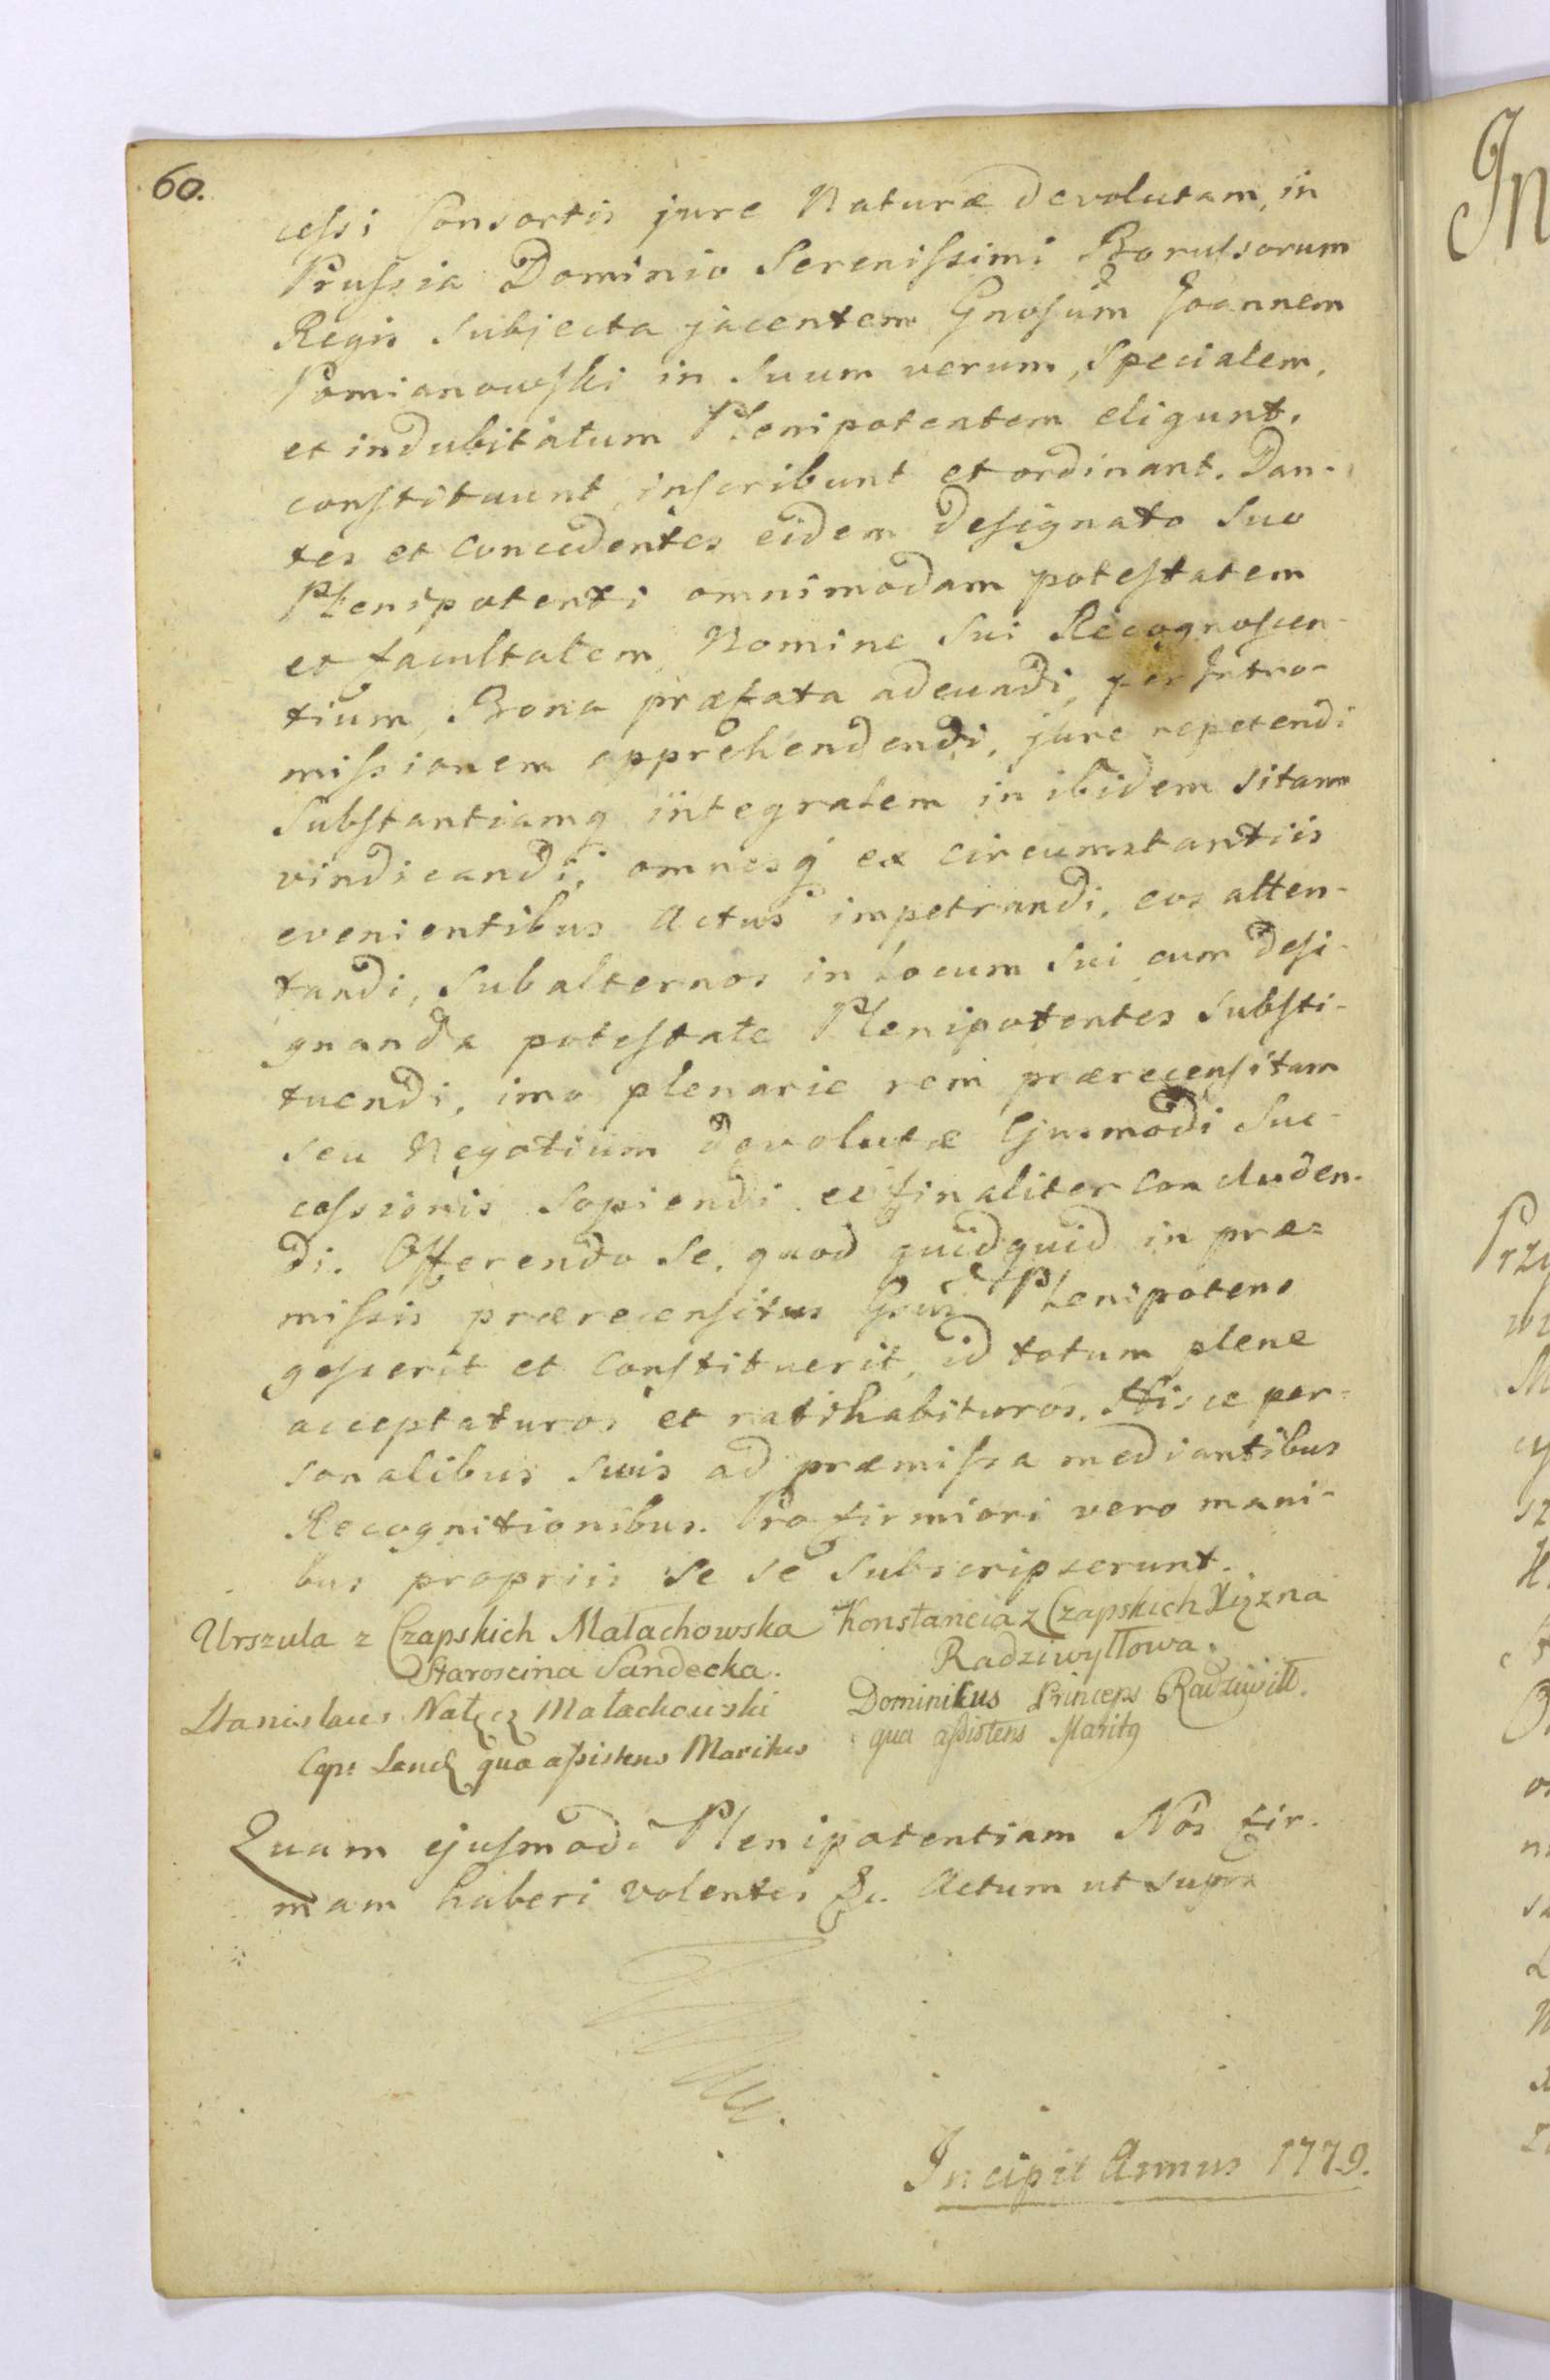 60.
cessi Consortis jure Naturæ devolutam, in
Prussia Dominio Serenissimi Borussorum
Regis Subjecta jacentem Gnosum Joannem
Pomianowski in Suum verum, Specialem,
et indubitatum Plenipotentem eligunt,
constituunt, inscribunt et ordinant. Dan-
tes et concedentes eidem designato Suo
Plenipotenti omnimodam potestatem
et facultatem, Nomine Sui Recognoscen-
tium, Bona præfata adeundi, per Intro-
missionem apprehendendi, jure repetendi
Substantiamq integralem in ibidem sitam
vindicandi, omnesq ex circumstantiis
evenientibus Actus impetrandi, eos atten-
tandi, Subalternos in Locum Sui cum desi-
gnanda potestate Plenipotentes Substi-
tuendi, imo plenarie rem prærecensitam
seu Negotium devolutæ Ejusmodi Suc-
cessionis Sopiendi et finaliter concluden-
di. Offerendo Se, quod quidquid in præ=
missis prærecensitus Gsus Plenipotens
gesserit et Constituerit, id totum plene
acceptaturos et ratihabituros. Hisce per=
sonalibus suis ad præmissa mediantibus
Recognitionibus. Pro firmiori vero mani-
bus propriis Se se Subscripserunt.
Urszula z Czapskich Małachowska Konstancia z Czapskich Xiężna
Staroscina Sandecka. Radziwyłłowa.
Stanislaus Nałęcz Małachowski Dominikus Princeps Radziwiłł.
Cap: Sand qua assistens Maritus qua assistens Maritq
Quam ejusmodi Plenipotentiam Nos fir-
mam haberi volentes &c. Actum ut supra
Incipit Annus 1779.
In